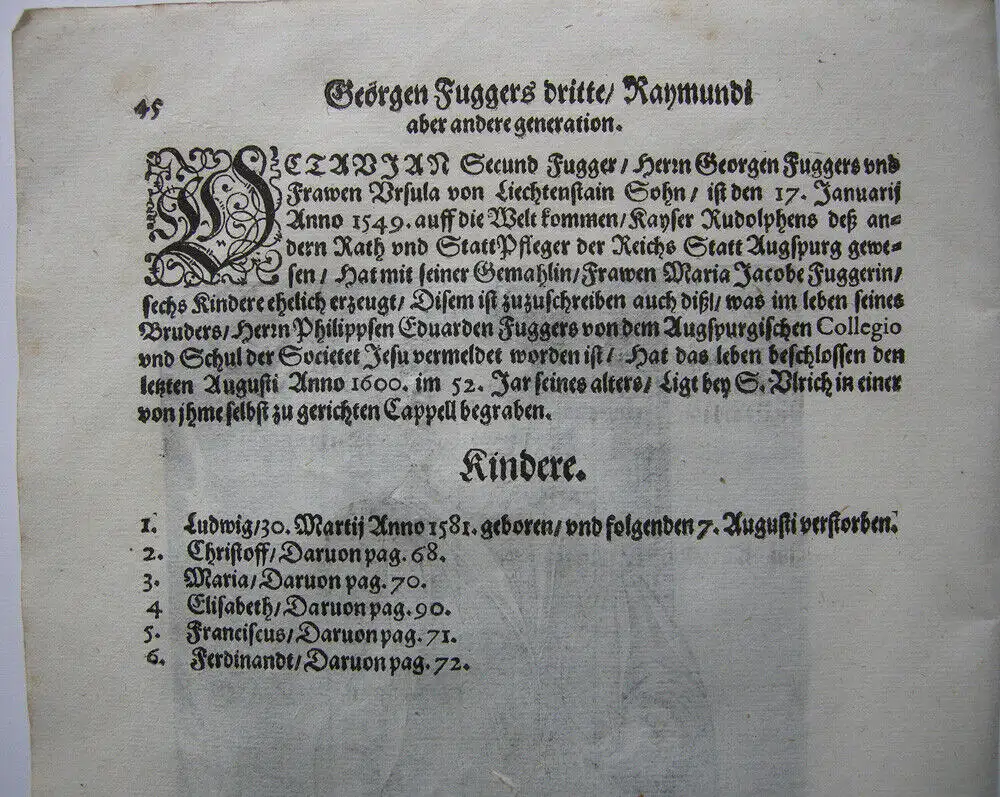 45
Geörgen Fuggers dritte/ Raymundi
aber andere generation.
OCTAVIAN Secund Fugger/ Herrn Georgen Fuggers vnd
Frawen Vrsula von Liechtenstain Sohn/ ist den 17. Januarij
Anno 1549. auff die Welt kommen/ Kayser Rudolphens deß an=
dern Rath vnd StattPfleger der Reichs Statt Augspurg gewe=
sen/ Hat mit seiner Gemahlin/ Frawen Maria Jacobe Fuggerin/
sechs Kindere ehelich erzeugt/ Disem ist zuzuschreiben auch diß/ was im leben seines
Bruders/ Herrn Philippsen Eduarden Fuggers von dem Augspurgischen Collegio
vnd Schul der Societet Jesu vermeldet worden ist/ Hat das leben beschlossen den
letzten Augusti Anno 1600. im 52. Jar seines alters/ Ligt bey S. Vlrich in einer
von jhme selbst zu gerichten Cappell begraben.
Kindere.
1. Ludwig/ 30. Martij Anno 1581. geboren/ vnd folgenden 7. Augusti verstorben.
2. Christoff/ Daruon pag. 68.
3. Maria/ Daruon pag. 70.
4 Elisabeth/ Daruon pag. 90.
5. Franciscus/ Daruon pag. 71.
6. Ferdinandt/ Daruon pag. 72.